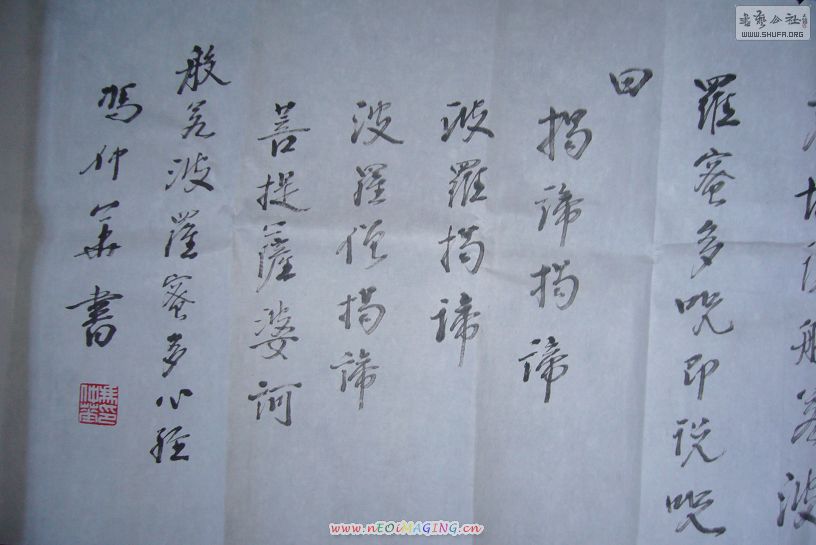 書藝公社
WWW.SHUFA.ORG
說般若波
羅蜜多咒即說咒
曰
揭諦揭諦
波羅揭諦
波羅僧揭諦
菩提薩婆訶
般若波羅蜜多心經
馮仲華書
馮印仲華
www.nEOiMAGiNG.cn